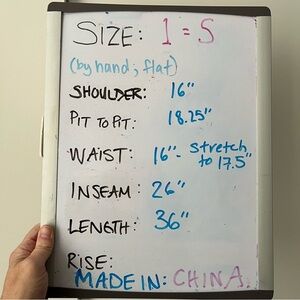 SIZE: 1 = S
(by hand; flat)
SHOULDER: 16"
PIT TO PIT: 18.25"
WAIST: 16" - stretch to 17.5"
INSEAM: 26"
LENGTH: 36"
RISE:
MADE IN: CHINA